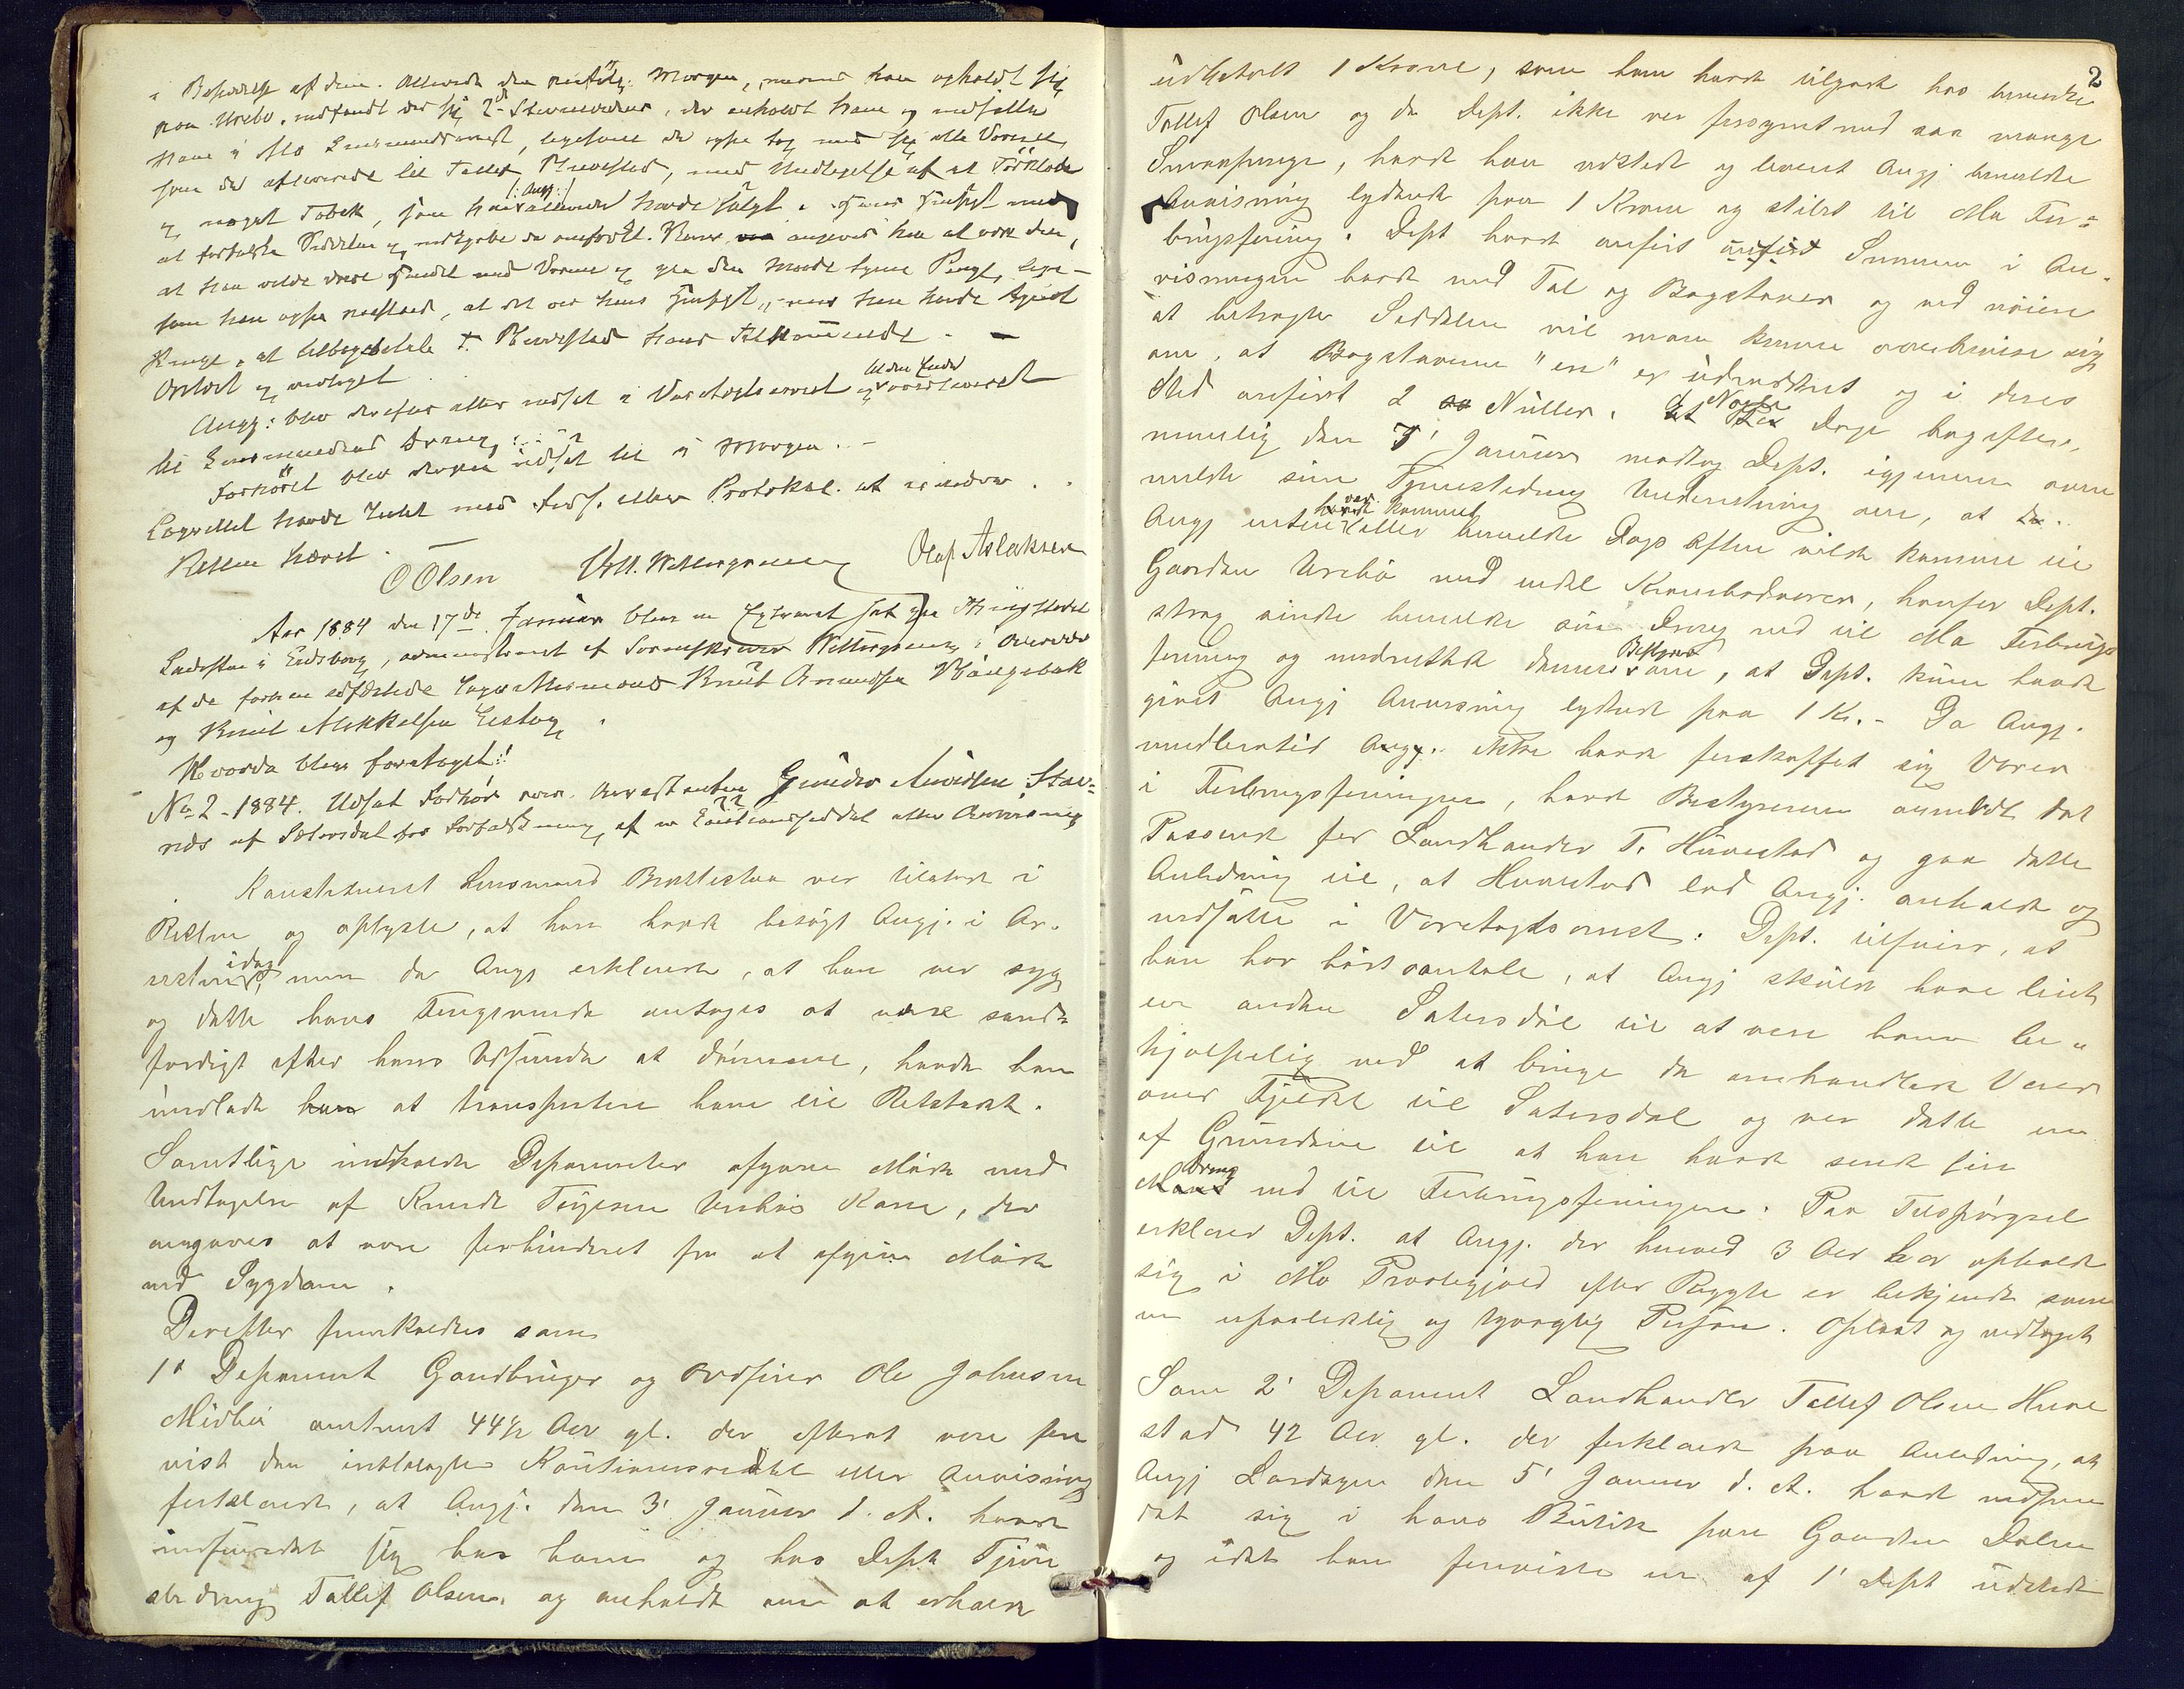 i Besiddelse af dem. Allerede den paafølg: Morgen, medens han opholdt sig
paa Urebø, indfandt der sig 2de Stevnevidner, der anholdt ham og indsatte
ham i Mo Lensmandsarrest, ligesom de ogsaa tog med sig alle Varerne
som de afleverede til Tallef Huvestad, med Undtagelse af et Tørklæde
og noget Tobak, som han /: Angj :/ allerede havde solgt. Hans Hensigt med
at forfalske Seddelen og udgive den angav han at være den,
at han vilde drive Handel med Varerne og paa den Maade tjene Penge, lige-
som han ogsaa paastaar, at det var hans Hensigt, naar han havde tjent
Penge, at tilbagebetale T. Huvestad hans Tilkommende. -
Oplæst og vedtaget.
Angj: blev derefter atter indsat i Varetægtsarrest og overleveret
til Lensmandens Dreng.
Forhøret blev derpaa udsat til i Morgen. -
Lagrettet havde Intet mod Feds. eller Protokol. at erindre.
Retten hævet.
O Olsen Wettergreen Olaf Aslaksen
Aar 1884 den 17de Januar blev en Extraret sat paa Thingstedet
Ladestua i Eidsborg, administreret af Sorenskriver Wettergreen, i Overvær
af de forhen edfæstede Lagrettesmænd Knut Amundsen Haugebak
og Knut Mikkelsen Eistog.
Hvorda blev foretaget:
No 2 - 1884. Udsat Forhør over Arrestanten Gunder Arvidsen Stav=
næs af Sætersdal for Forfalskning af en Cautionsseddel eller Anvisning
Konstitueret Lensmand Brattestaa var tilstede i
Retten og oplyste, at han havde besøgt Angj. i Ar-
resten idag, men da Angj erklærede, at han var syg
og dette hans Foregivende antages at være sand-
færdigt efter hans Udseende at dømme, havde han
undladt at transportere ham til Retstedet.
Samtlige indkaldte Deponenter afgave Møde med
Undtagelse af Knud Teigesen Urebøs Kone, der
opgaves at være forhindret fra at afgive Møde
ved Sygdom.
Derefter fremkaldtes som
1' Deponent Gaardbruger og Ordfører Ole Johnsen
Midbø omtrent 44 1/2 Aar gl. der efterat være fore
vist den indklagede Kautionsseddel eller Anvisning
forklarede, at Angj. den 3' Januar d. A. havde
indfundet sig hos ham og hos Depts Tjene
stedreng Tallef Olsen, og anholdt om at erholde
2
udbetalt 1 Krone, som han havde tilgode hos bemeldte
Tallef Olsen og da Dept. ikke var forsynet med saa mange
Smaapenge, havde han udstedt og leveret Angj bemeldte
Anvisning lydende paa 1 Krone og stilet til Mo For=
brugsforening. Dept havde anført anført Summen i An-
visningen baade med Tal og Bogstaver og ved nøiere
at betragte Seddelen vil man kunne overbevise sig
om, at Bogstaverne "en" er udvidsket og i deres
Sted anført 2 Nuller. Nogle Dage bagefter,
nemlig den 7' Januar modtog Dept. igjennem oven
meldte sin Tjenestedreng Underretning om, at
Angj enten var kommet eller bemeldte Dags Aften vilde komme til
Gaarden Urebø med endel Krambodvarer, hvorfor Dept.
strax sendte bemeldte sin Dreng ned til Mo Forbrugs
forening og underrettede dennes Bestyrer om, at Dept. kun havde
givet Angj Anvisning lydende paa 1 Kr. - Da Angj.
imidlertid Angj. ikke havde forskaffet sig Varer
i Forbrugsforeningen, havde Bestyreren anmeldt det
Passerede for Landhandler T. Huvestad og gav dette
Anledning til, at Huvestad lod Angj. anholde og
indsætte i Varetægtsarrest. Dept. tilføier, at
han har hørt omtale, at Angj skulde have leiet
en anden Sætersdøl til at være ham be-
hjælpelig ved at bringe de omhandlede Varer
over Fjeldet til Sætersdal og var dette en
af Grundene til at han havde sendt sin
Dreng ned til Forbrugsforeningen. Paa Tilspørgsel
erklærer Dept. at Angj. der henved 3 Aar har opholdt
sig i Mo Præstegjeld efter Rygte er bekjendt som
en upaalidelig og tyvagtig Person. Oplæst og vedtaget
Som 2' Deponent Landhandler Tallef Olsen Huve
stad 42 Aar gl. der forklarede paa Anledning, at
Angj Lørdagen den 5' Januar d. A. havde indfun
det sig i hans Butik paa Gaarden Dalen
og idet han foreviste en af 1' Dept udstedt